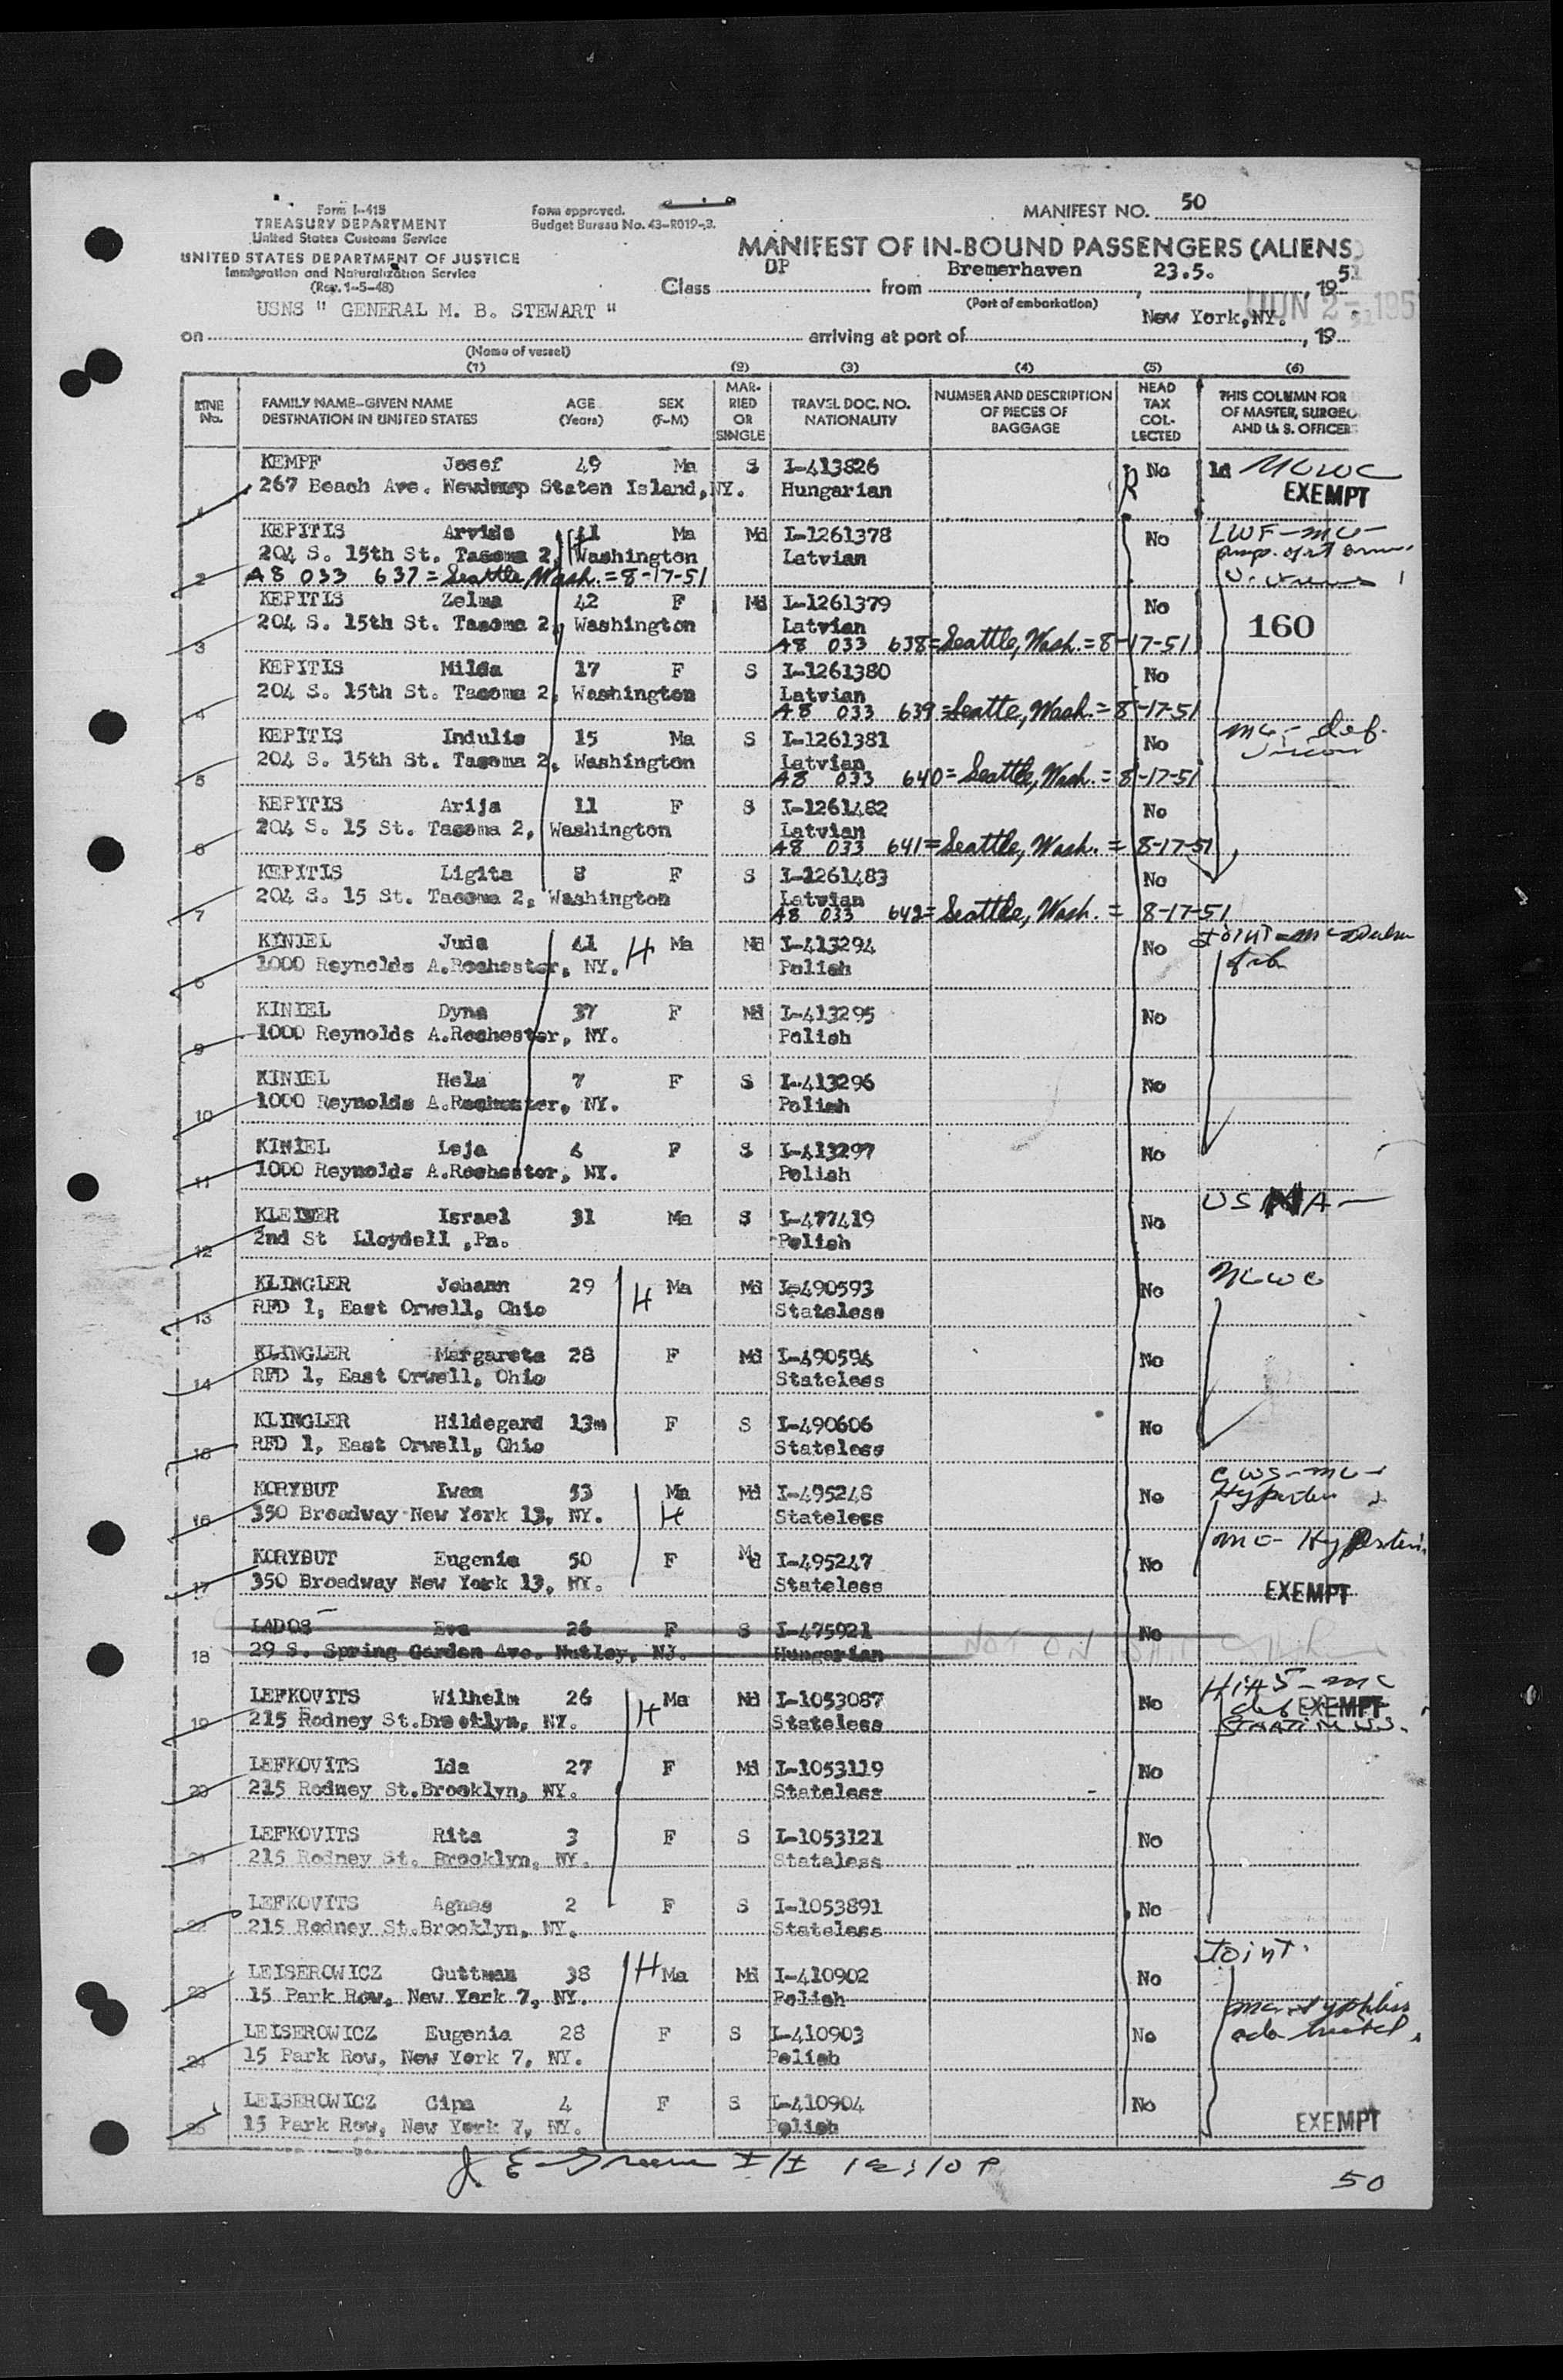 MANIFEST NO. 50
Form I-415
TREASURY DEPARTMENT
United States Customs Service
UNITED STATES DEPARTMENT OF JUSTICE
Immigration and Naturalization Service
(Rev. 1-5-48)
Form approved.
Budget Bureau No. 43-R019-3.
MANIFEST OF IN-BOUND PASSENGERS (ALIENS)
Class DP from Bremerhaven, 23.5., 1951
(Port of embarkation)
USNS " GENERAL M. B. STEWART "
New York,NY. JUN 2- 195
on arriving at port of , 19
(Name of vessel)
(1) (2) (3) (4) (5) (6)
LINE No.
FAMILY NAME-GIVEN NAME DESTINATION IN UNITED STATES
AGE (Years)
SEX (F-M)
MARRIED OR SINGLE
TRAVEL DOC. NO. NATIONALITY
NUMBER AND DESCRIPTION OF PIECES OF BAGGAGE
HEAD TAX COLLECTED
THIS COLUMN FOR OF MASTER, SURGEO AND U. S. OFFICER
KEMPF Josef 49 Ma S I-413826 R No NCWC
1 267 Beach Ave. Newdrup Staten Island,NY. Hungarian EXEMPT
KEPITIS Arvids 41 Ma Md I-1261378 No LWF-mc-
204 S. 15th St. Tacoma 2, Washington Latvian
2 A8 033 637 = Seattle, Wash. = 8-17-51
KEPITIS Zelma 42 F Md I-1261379 No
204 S. 15th St. Tacoma 2, Washington Latvian 160
3 A8 033 638 = Seattle, Wash. = 8-17-51
KEPITIS Milda 17 F S I-1261380 No
204 S. 15th St. Tacoma 2, Washington Latvian
4 A8 033 639 = Seattle, Wash. = 8-17-51
KEPITIS Indulis 15 Ma S I-1261381 No mc- def.
204 S. 15th St. Tacoma 2, Washington Latvian
5 A8 033 640 = Seattle, Wash. = 8-17-51
KEPITIS Arija 11 F S I-1261482 No
204 S. 15 St. Tacoma 2, Washington Latvian
6 A8 033 641 = Seattle, Wash. = 8-17-51
KEPITIS Ligita 8 F S I-1261483 No
204 S. 15 St. Tacoma 2, Washington Latvian
7 A8 033 642 = Seattle, Wash. = 8-17-51
KINIEL Juda 41 H Ma Md I-413294 No Joint-mc
8 1000 Reynolds A.Rochester, NY. Polish
KINIEL Dyna 37 F Md I-413295 No
9 1000 Reynolds A.Rochester, NY. Polish
KINIEL Hela 7 F S I-413296 No
10 1000 Reynolds A.Rochester, NY. Polish
KINIEL Leja 6 F S I-413297 No
11 1000 Reynolds A.Rochester, NY. Polish
KLEINER Israel 31 Ma S I-477419 No USNA-
12 2nd St Lloydell ,Pa. Polish
KLINGLER Johann 29 H Ma Md I-490593 No NCWC
13 RFD 1, East Orwell, Ohio Stateless
KLINGLER Margarete 28 F Md I-490594 No
14 RFD 1, East Orwell, Ohio Stateless
KLINGLER Hildegard 13m F S I-490606 No
15 RFD 1, East Orwell, Ohio Stateless
KORYBUT Iwan 53 Ma Md I-495248 No CWS-mc-
16 350 Broadway New York 13, NY. H Stateless
KORYBUT Eugenia 50 F Md I-495247 No mc-
17 350 Broadway New York 13, NY. Stateless EXEMPT
LADOS Eva 26 F S I-475921 No
18 29 S. Spring Garden Ave. Nutley, NJ. Hungarian NOT ON
LEFKOVITS Wilhelm 26 H Ma Md I-1053087 No HIAS-mc
19 215 Rodney St.Brooklyn, NY. Stateless EXEMPT
LEFKOVITS Ida 27 F Md I-1053119 No
20 215 Rodney St.Brooklyn, NY. Stateless
LEFKOVITS Rita 3 F S I-1053121 No
21 215 Rodney St. Brooklyn, NY. Stateless
LEFKOVITS Agnes 2 F S I-1053891 No
22 215 Rodney St.Brooklyn, NY. Stateless
LEISEROWICZ Guttman 38 H Ma Md I-410902 No Joint.
23 15 Park Row, New York 7, NY. Polish
LEISEROWICZ Eugenia 28 F S I-410903 No mc-syphilis
24 15 Park Row, New York 7, NY. Polish
LEISEROWICZ Cipa 4 F S I-410904 No
25 15 Park Row, New York 7, NY. Polish EXEMPT
50